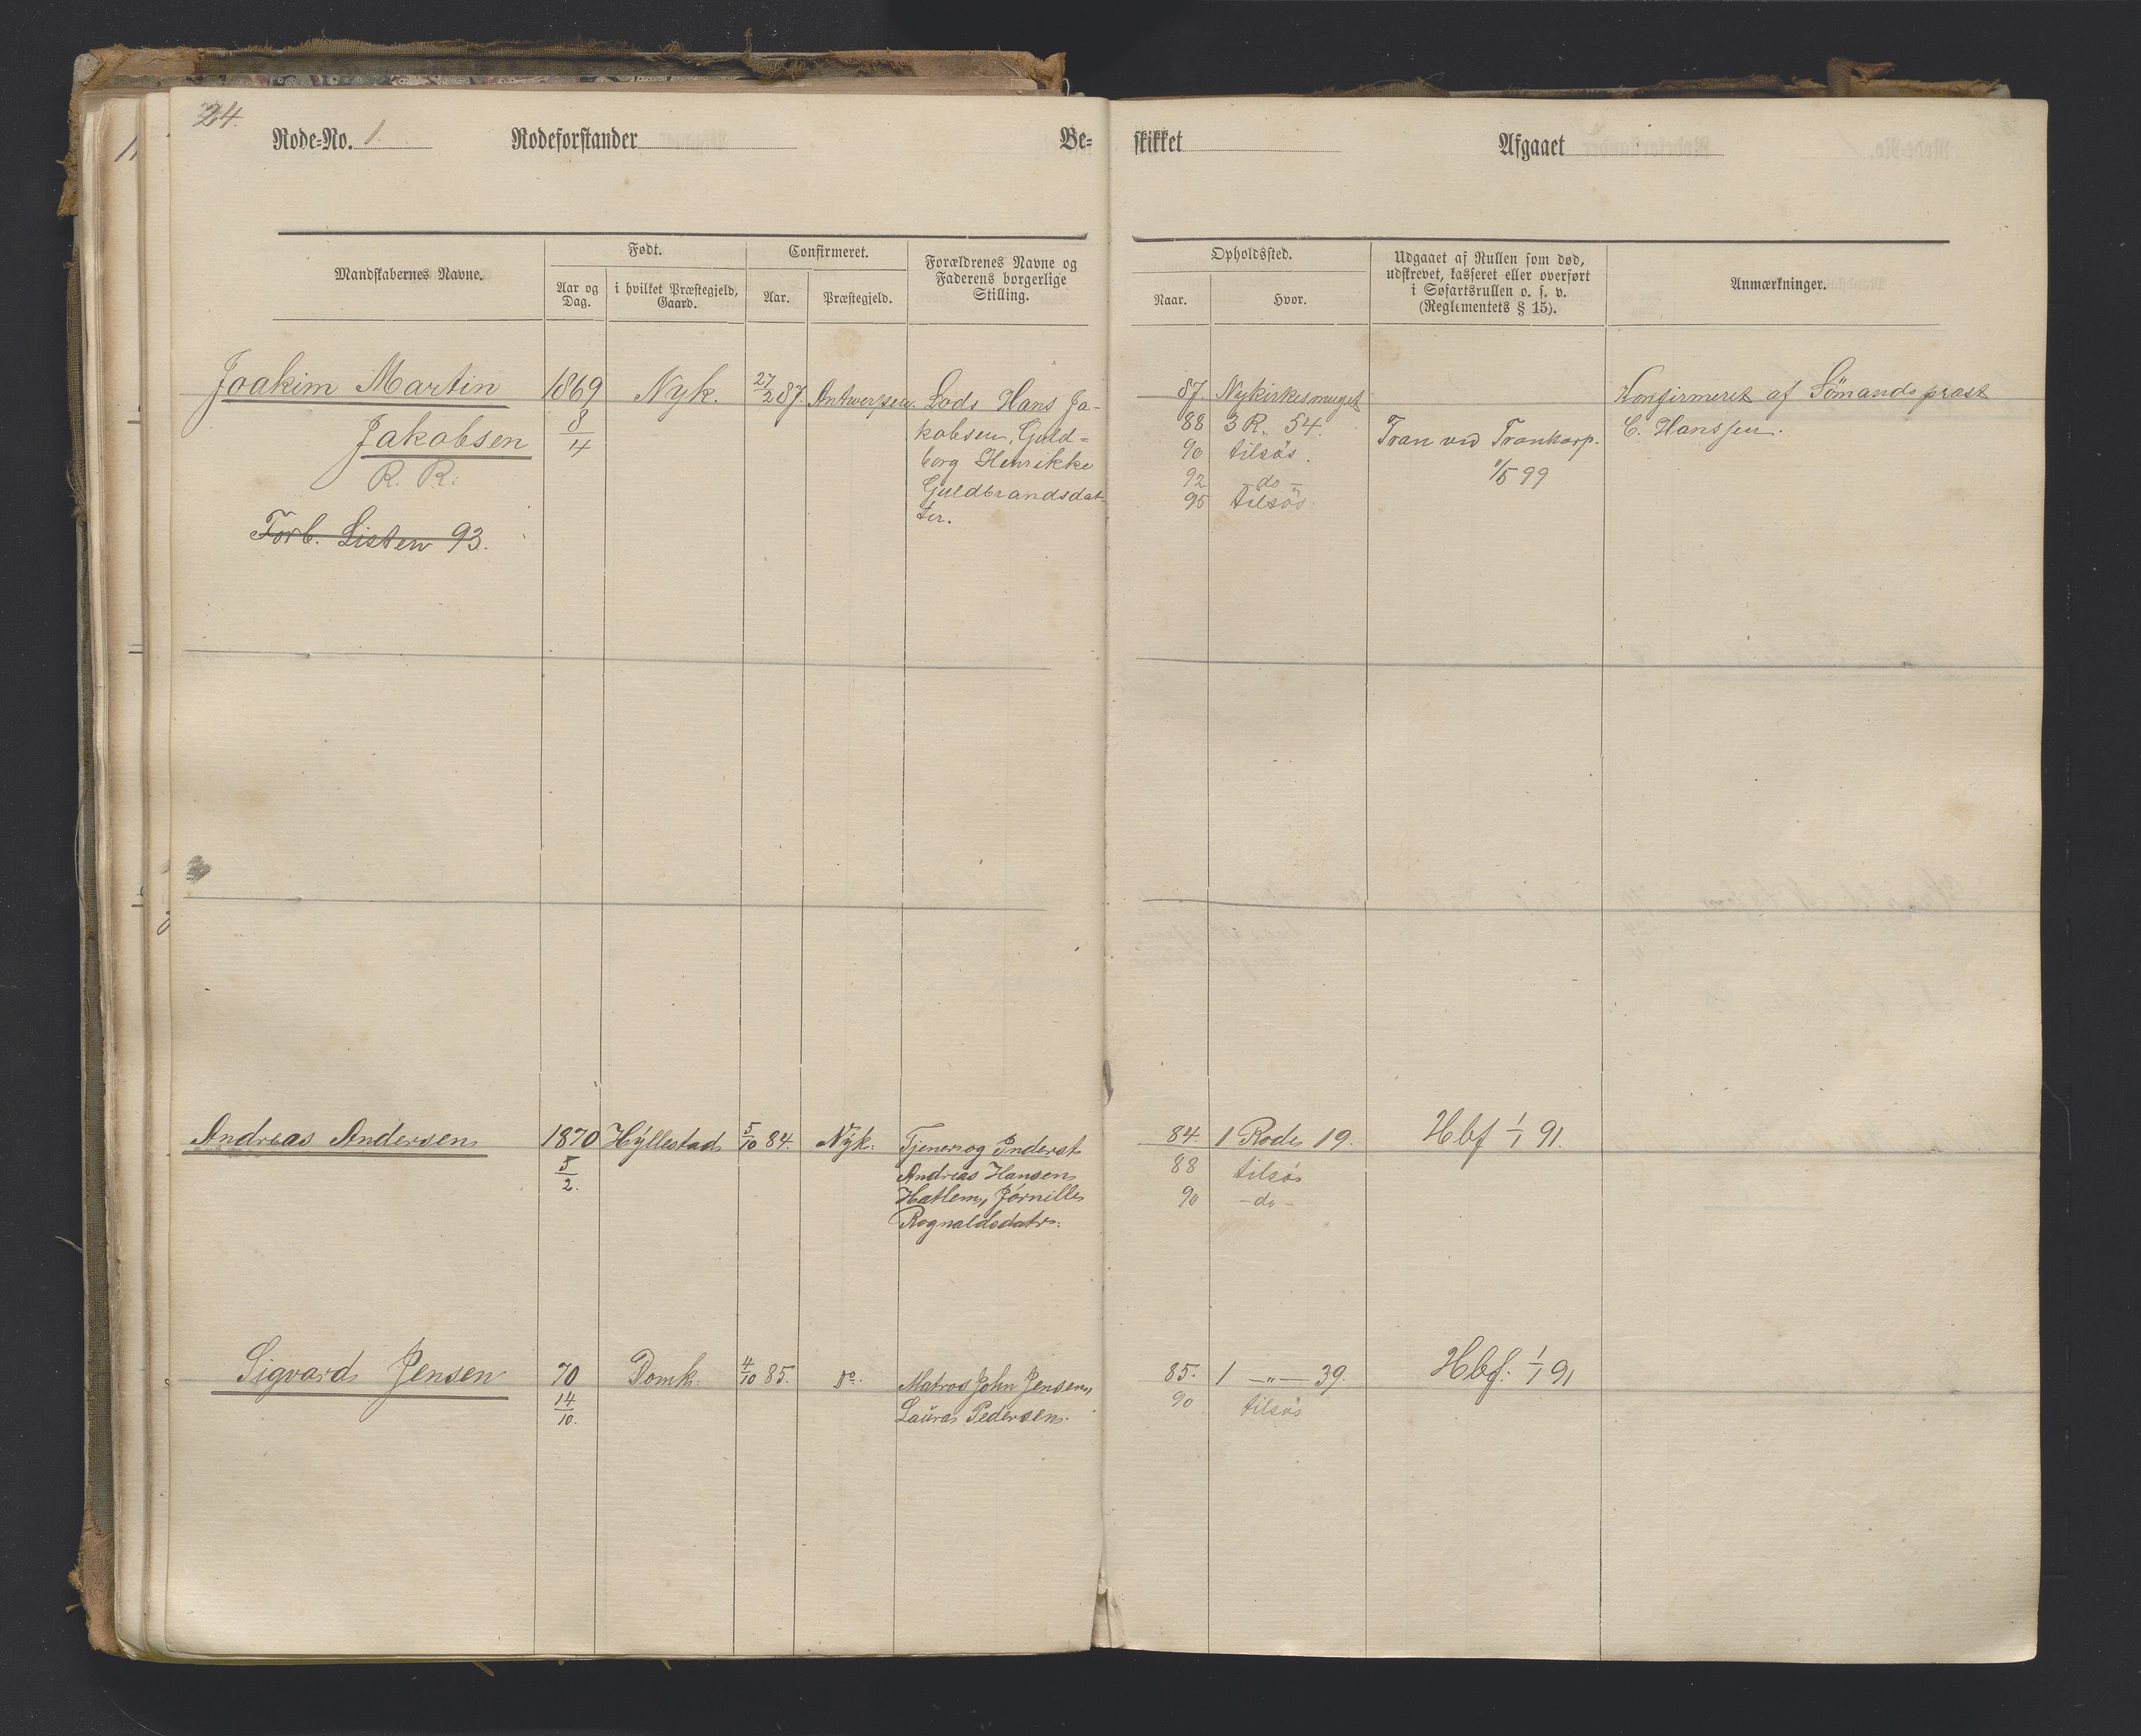 24.
Rode=No. 1. Rodeforstander Be= skikket Afgaaet
Mandskabernes Navne. Født. Confirmeret. Forældrenes Navne og Faderens borgerlige Stilling. Opholdssted. Udgaaet af Rullen som død, udskrevet, kasseret eller overført i Søfartsrullen o. s. v. (Reglementets § 15). Anmærkninger.
Aar og Dag. i hvilket Præstegjeld, Gaard. Aar. Præstegjeld. Naar. Hvor.
Joakim Martin 1869 Nyk. 27/2 87. Antwerpen. Lods Hans Ja- 87. Nykirkesmuget Konfirmeret af Sömandsprest
Jakobsen 8/4 kobsen, Guld= 88 3 R. 54. Tran ved C. Hanssen.
R. R. borg Henrikke 90 tilsös. 1/5 99
Guldbrandsdat- 92 - do -
ter. 95 tilsös
Forb. Listen 93.
Andreas Andersen 1870 Hyllestad 5/10 84. Nyk. Tjener og Inderst 84. 1 Rode 19. Hbf 1/1 91.
5/2. Andreas Hansen 88 tilsös
Hatlem, Jörnille 90 - do -
Rognaldsdatr.
Sigvard Jensen 70 Domk. 4/10 85. Do. Matros John Jensen, 85. 1 -"- 39. Hbf. 1/1 91
14/10. Laura Pedersen. 90 tilsös